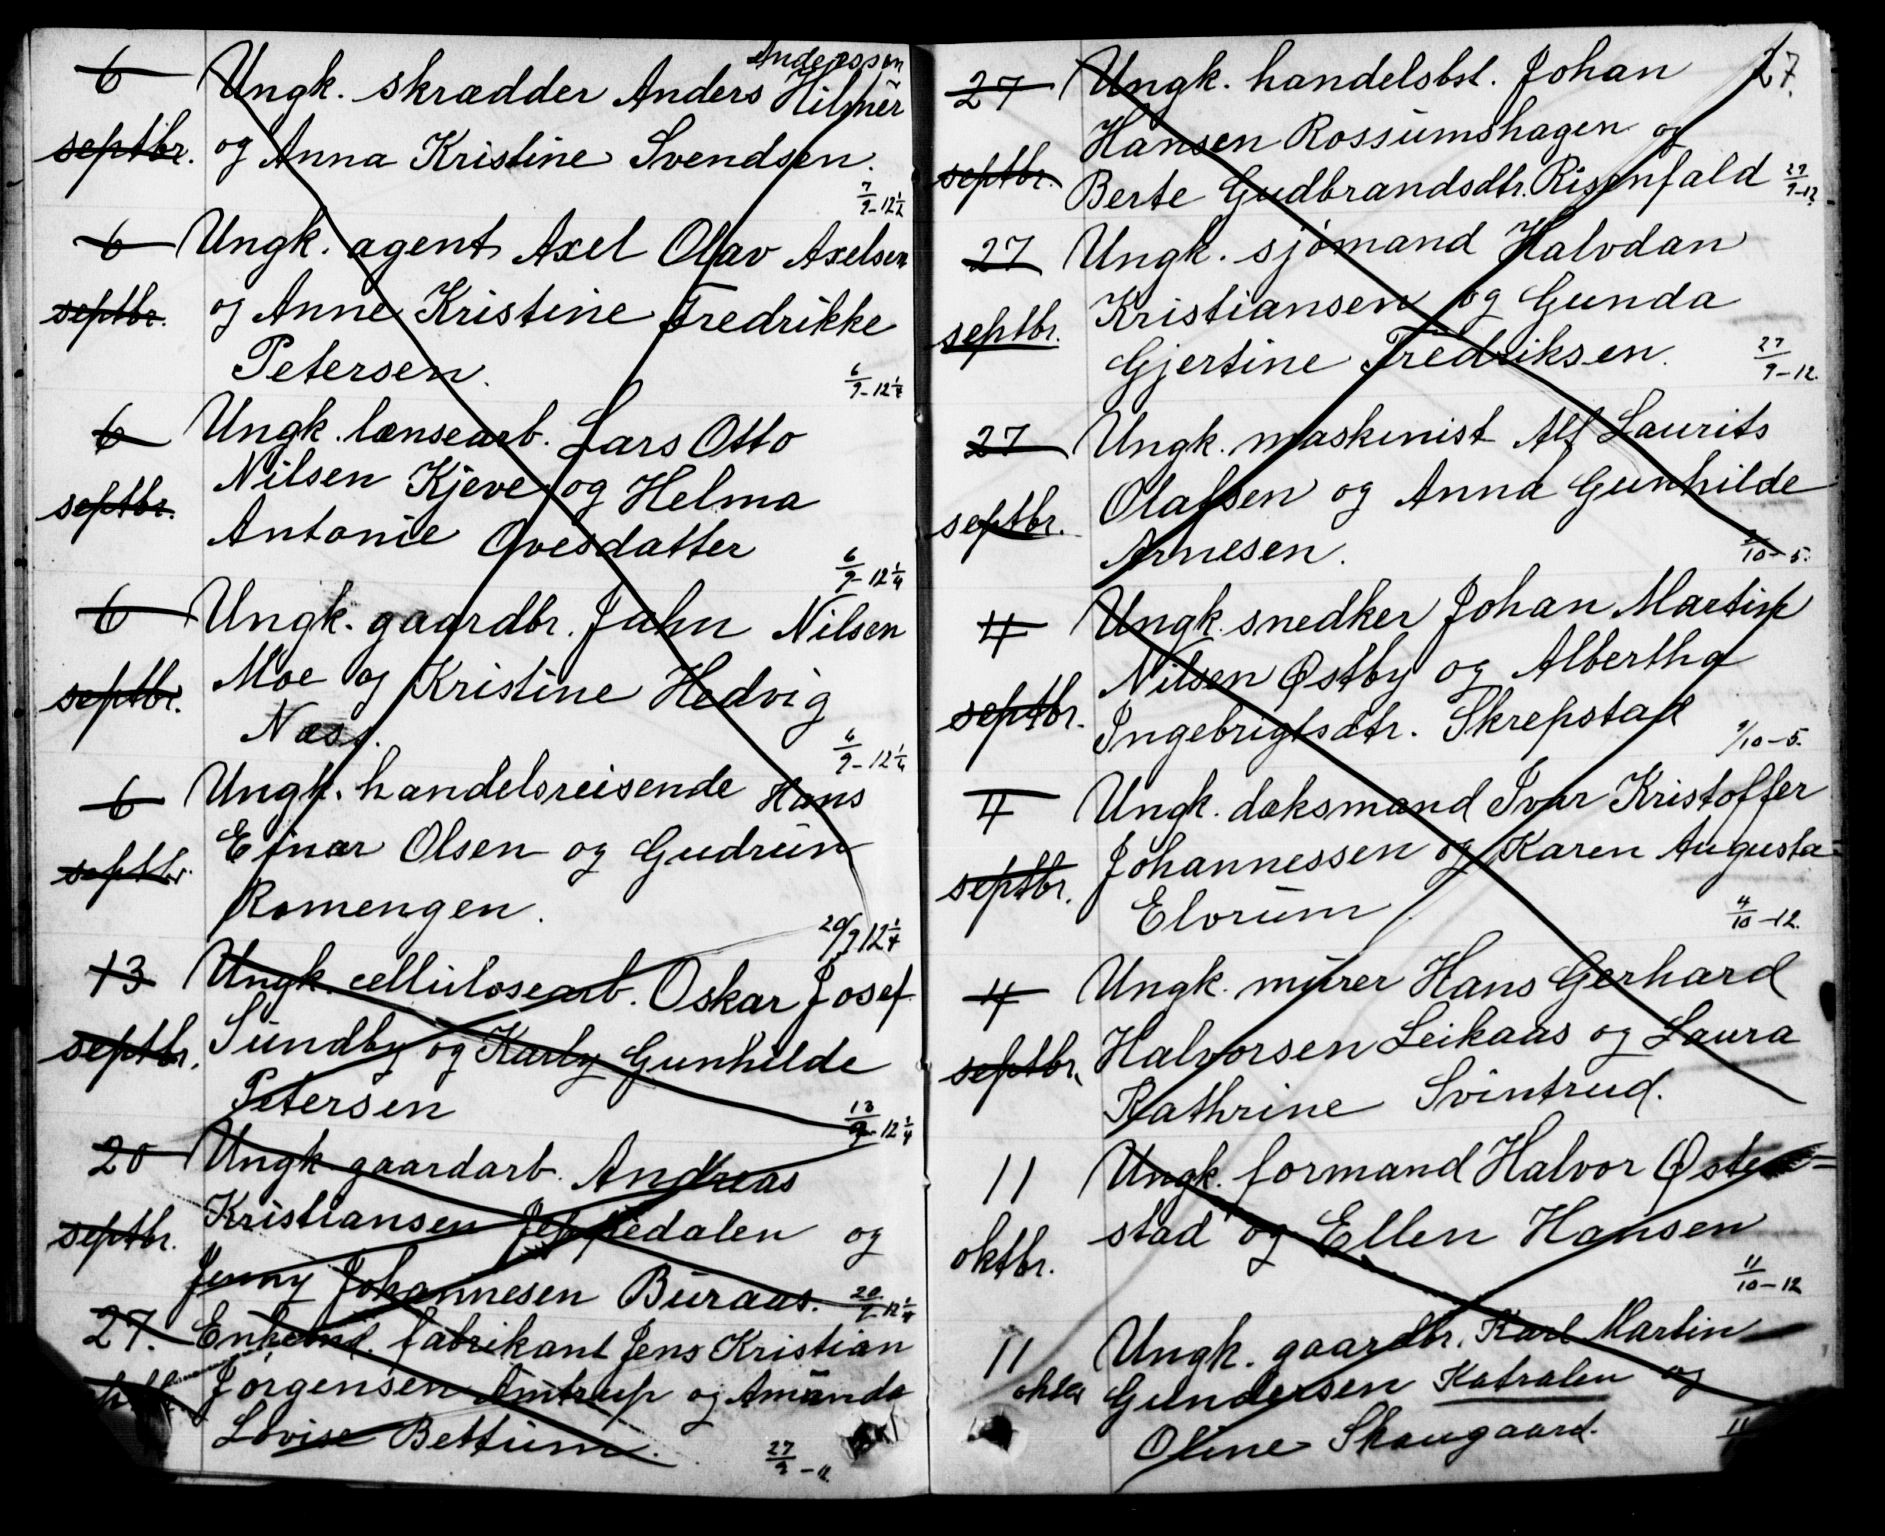 Anderssen
6 Ungk. skrædder Anders Hilmer
septbr. og Anna Kristine Svendsen.
7/9-12½
6 Ungk. agent Axel Olav Axelsen
septbr. og Anne Kristine Fredrikke
Petersen.
6/9-12¼
6 Ungk. lænsearb. Lars Otto
Nilsen Kjeve og Helma
septbr. Antonie Ovesdatter
6/9-12¼
6 Ungk. gaardbr. Jahn Nilsen
septbr. Moe og Kristine Hedvig
Næss.
6/9-12¼
6 Ungk. handelsreisende Hans
septbr. Einar Olsen og Gudrun
Romengen.
20/9 12¼
13 Ungk. cellulosearb. Oskar Josef
septbr. Sundby og Karly Gunhilde
Petersen
13/9-12¼
20 Ungk gaardarb. Andreas
septbr. Kristiansen og
Jenny Johannesen Buraas. 20/9-12¼
27. Enkemd. fabrikant Jens Kristian
Jørgensen Amtrup og Amanda
Lovise Bettum.
27/9-12
27.
27 Ungk. handelsbst. Johan
Hansen Rossumshagen og
septbr. Berte Gudbrandsdtr. Risenfald 27/9-12
27 Ungk. sjømand Halvdan
septbr. Kristiansen og Gunda
Gjertine Fredriksen.
27/9-12.
27 Ungk. maskinist Alf Laurits
septbr. Olafsen og Anna Gunhilde
Arnesen.
/10-5.
4 Ungk. snedker Johan Martin
Nilsen Østby og Albertha
septbr. Ingebrigtsdtr. Skrepstad
/10-5.
4 Ungk. dæksmand Ivar Kristoffer
septbr. Johannessen og Karen Augusta
Elvrum
4/10-12.
4 Ungk. murer Hans Gerhard
septbr. Halvorsen Leikaas og Laura
Kathrine Svintrud.
11 Ungk. formand Halvor Østen=
oktbr. stad og Ellen Hansen
11/10-12
11 Ungk. gaardbr. Karl Martin
oktbr Gundersen Katralen og
Oline Skaugaard.
11